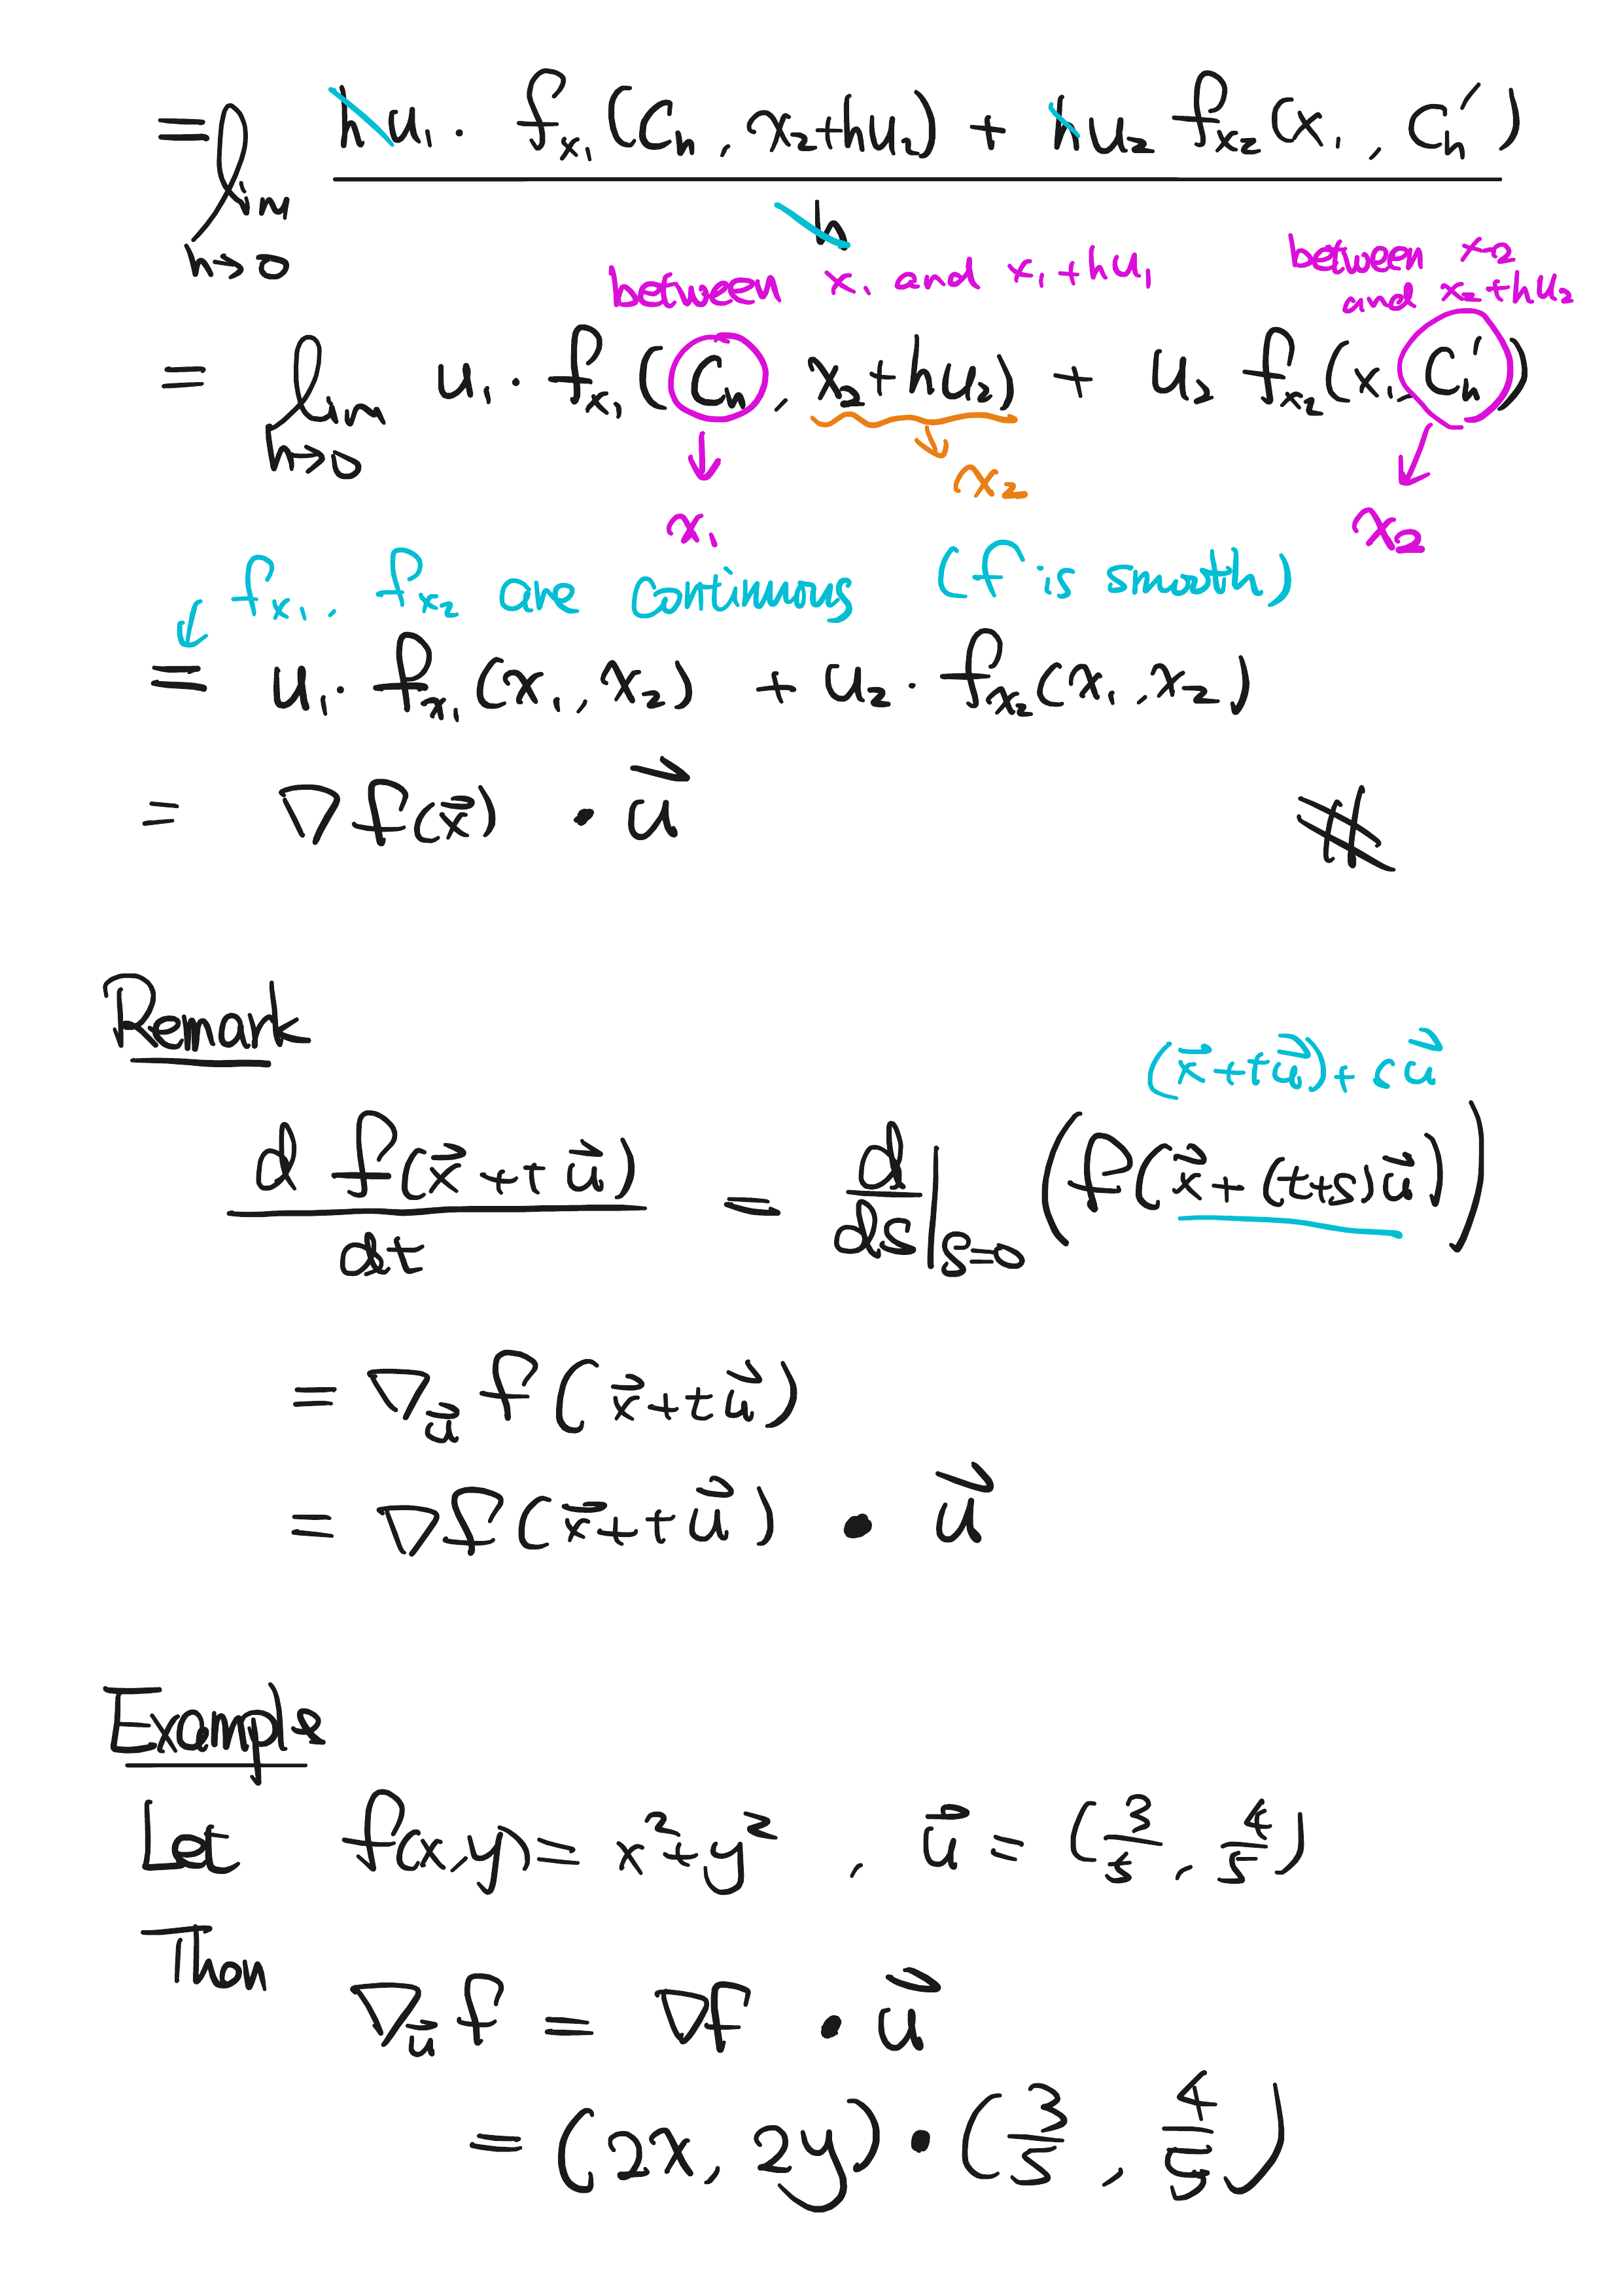 = lim h→0 (hu₁ · f_{x₁}(C_h, x₂+hu₂) + hu₂ f_{x₂}(x₁, C_h′)) / h
between x₁ and x₁+hu₁
between x₂
and x₂+hu₂
= lim h→0 u₁ · f_{x₁}(C_h, x₂+hu₂) + u₂ f_{x₂}(x₁, C_h′)
↓ x₁
↓ x₂
↓ x₂
f_{x₁}, f_{x₂} are continuous (f is smooth)
= u₁ · f_{x₁}(x₁, x₂) + u₂ · f_{x₂}(x₁, x₂)
= ∇f(x⃗) • u⃗ #
Remark
(x⃗+tu⃗)+su⃗
d f(x⃗+tu⃗) / dt = d/ds |_{s=0} (f(x⃗+(t+s)u⃗))
= ∇_u⃗ f(x⃗+tu⃗)
= ∇f(x⃗+tu⃗) • u⃗
Example
Let f(x,y) = x²+y², u⃗ = (3/5, 4/5)
Then
∇_u⃗ f = ∇f • u⃗
= (2x, 2y) • (3/5, 4/5)